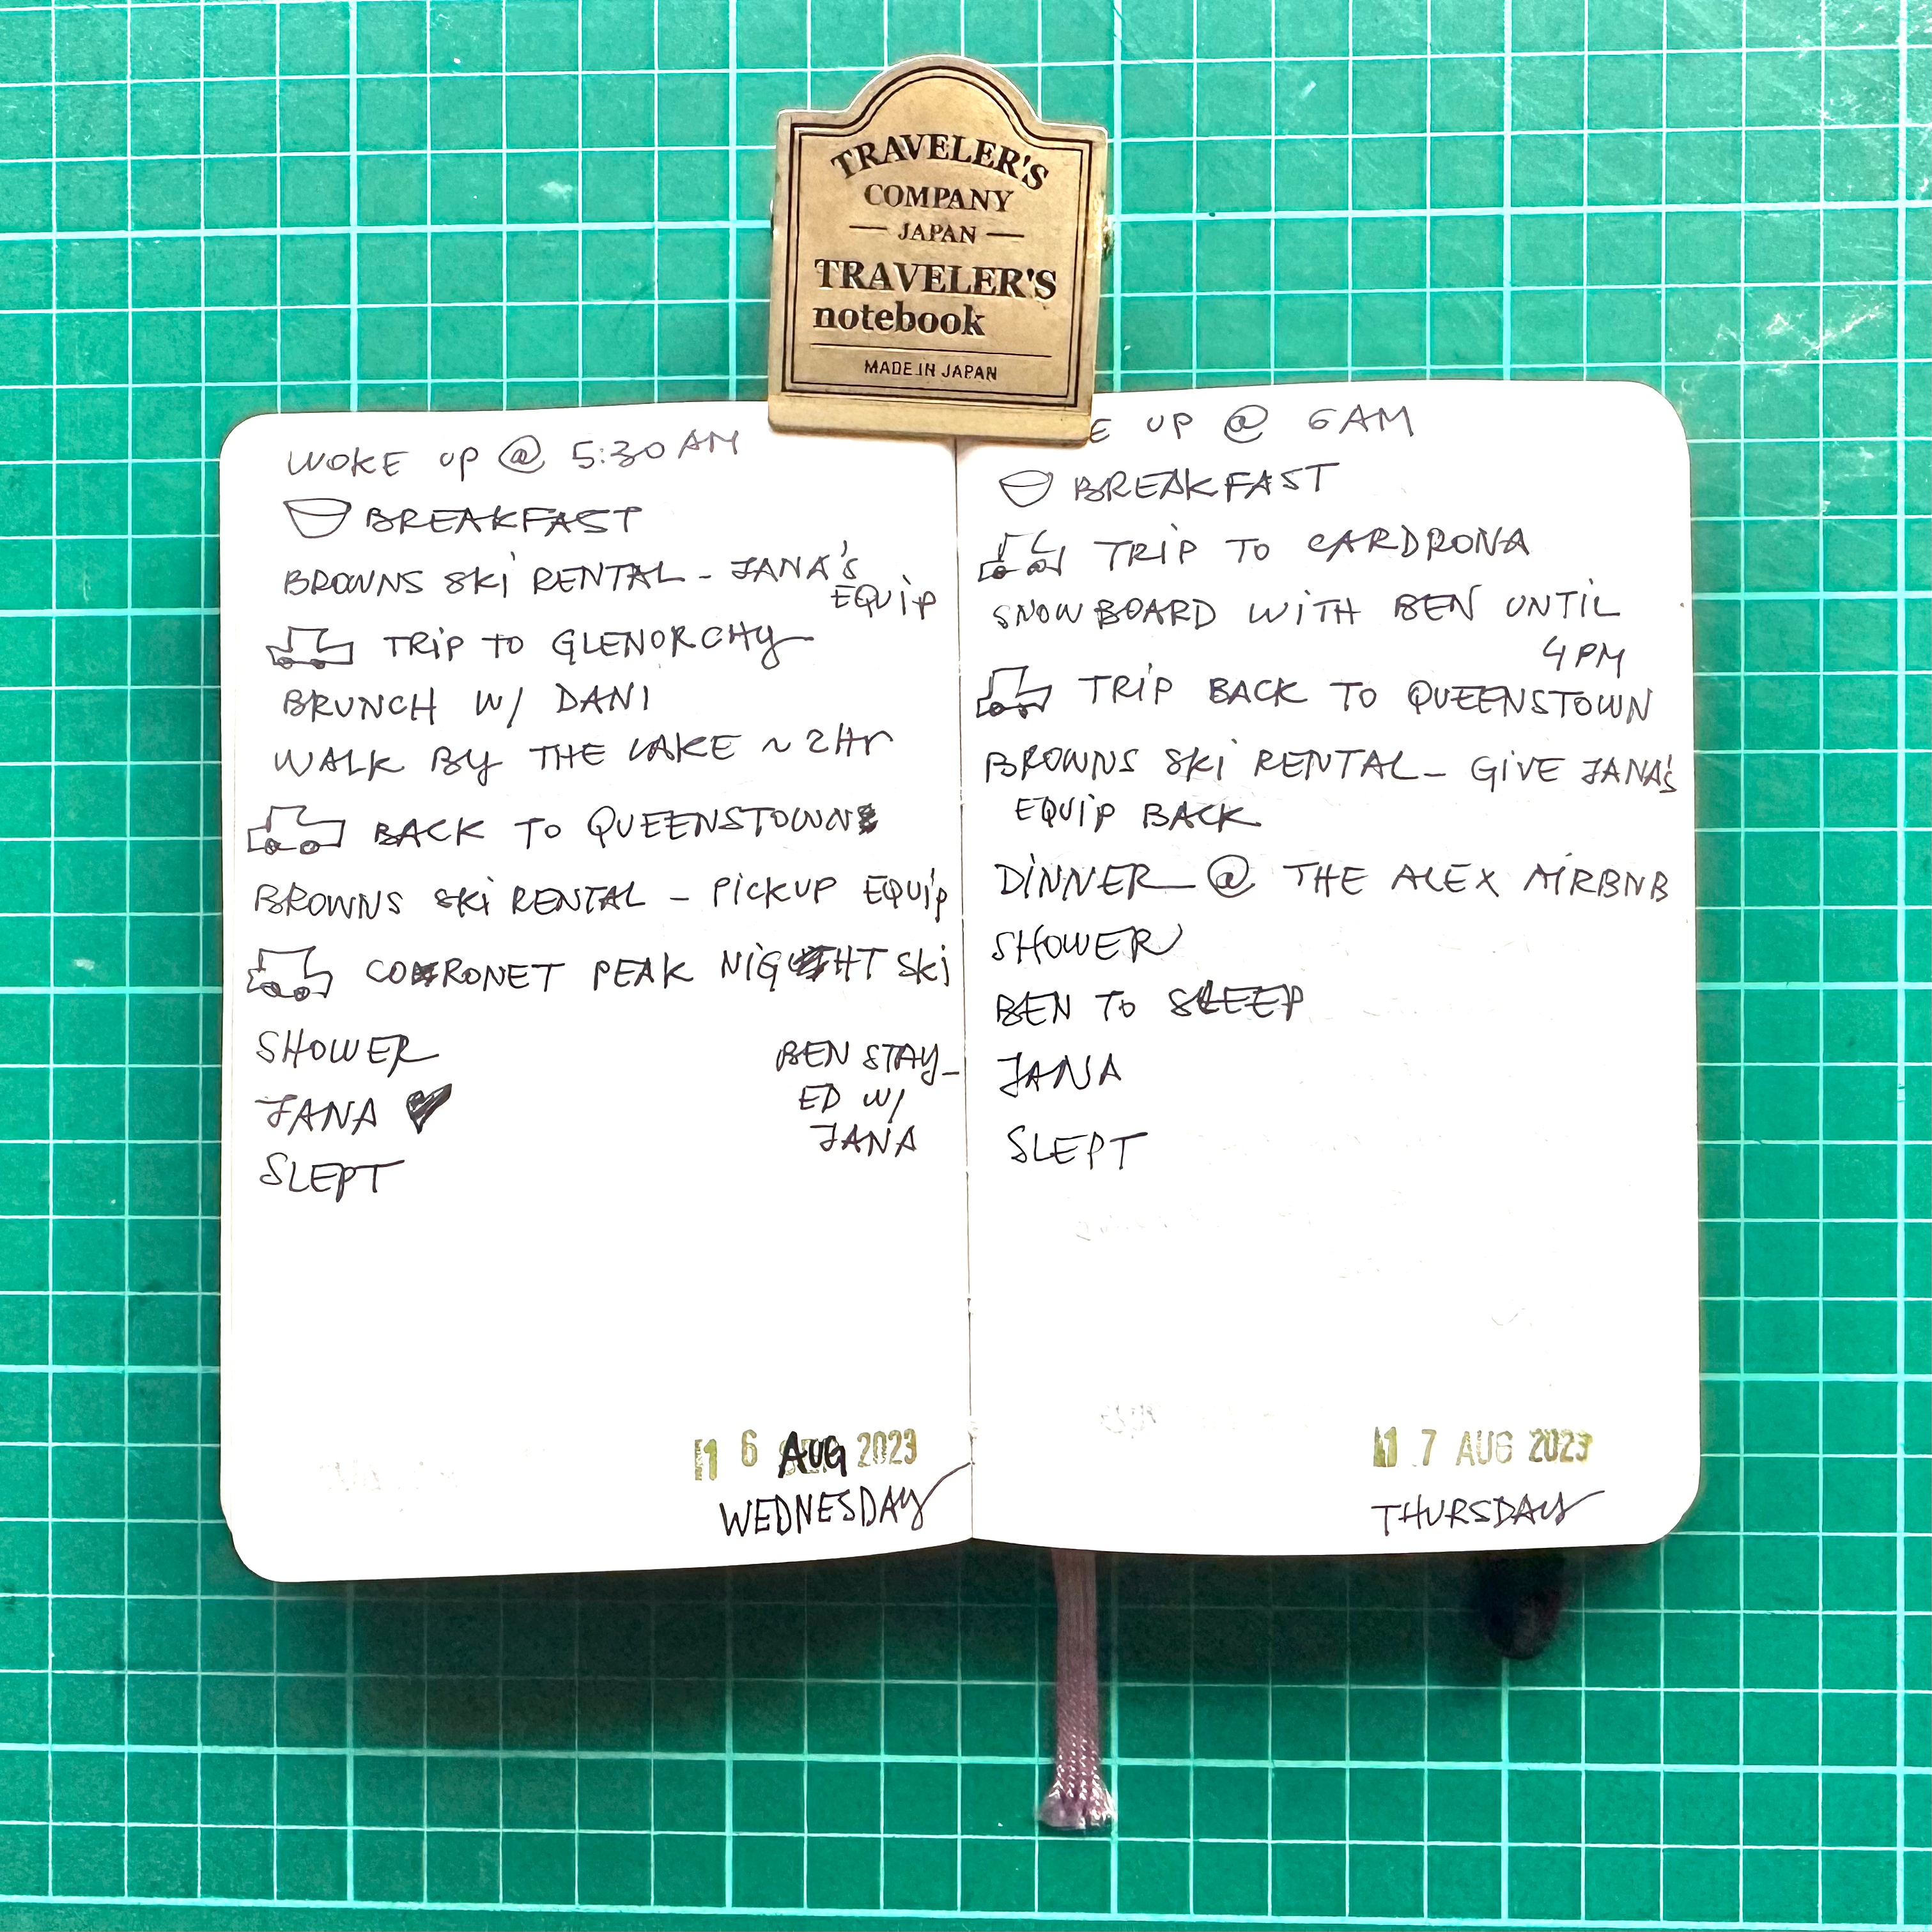 TRAVELER'S
COMPANY
JAPAN
TRAVELER'S
notebook
MADE IN JAPAN
WOKE UP @ 5:30 AM
BREAKFAST
BROWNS SKI RENTAL - JANA'S
EQUIP
TRIP TO GLENORCHY
BRUNCH W/ DANI
WALK BY THE LAKE ~ 2Hr
BACK TO QUEENSTOWN
BROWNS SKI RENTAL - PICKUP EQUIP
CORONET PEAK NIGHT SKI
SHOWER
JANA ♥
SLEPT
BEN STAY-
ED W/
JANA
16 AUG 2023
WEDNESDAY
E UP @ 6AM
BREAKFAST
TRIP TO CARDRONA
SNOWBOARD WITH BEN UNTIL
4PM
TRIP BACK TO QUEENSTOWN
BROWNS SKI RENTAL - GIVE JANA'S
EQUIP BACK
DINNER @ THE ALEX AIRBNB
SHOWER
BEN TO SLEEP
JANA
SLEPT
17 AUG 2023
THURSDAY